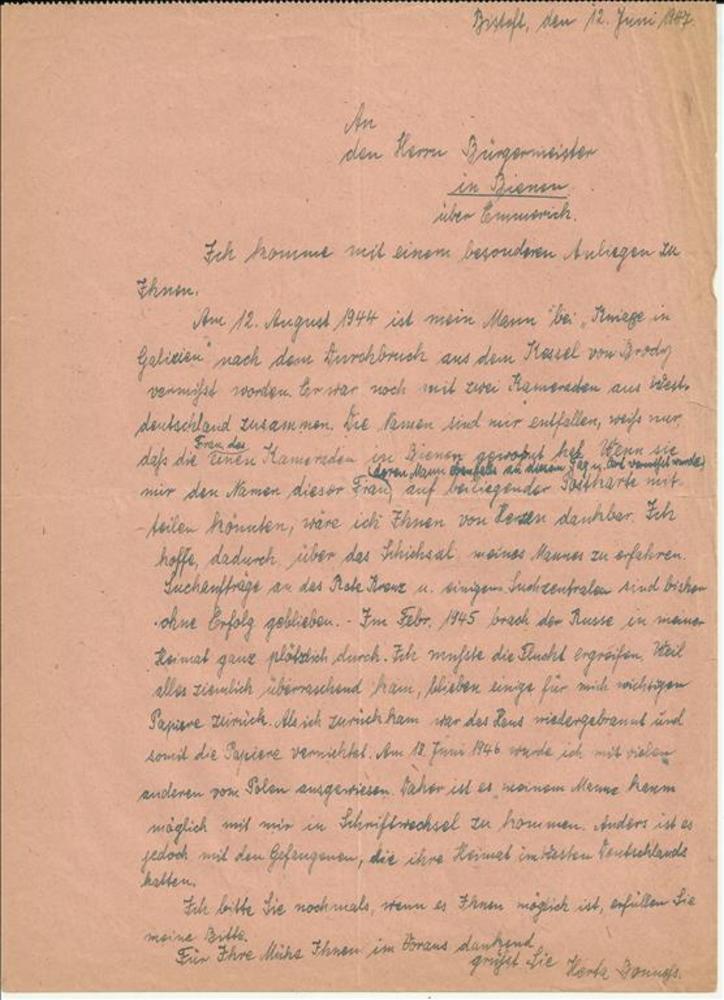 Bistoft, den 12. Juni 1947.
An
den Herrn Bürgermeister
in Bienen
über Emmerich.
Ich komme mit einem besonderen Anliegen zu
Ihnen.
Am 12. August 1944 ist mein Mann bei „Kniaze in
Galizien" nach dem Durchbruch aus dem Kessel von Brody
vermißt worden. Er war noch mit zwei Kameraden aus West-
deutschland zusammen. Die Namen sind mir entfallen, weiß nur,
daß die Frau des einen Kameraden in Bienen gewohnt hat. Wenn sie
(deren Mann ebenfalls an diesem Tag u. Ort vermißt wurde)
mir den Namen dieser Frau auf beiliegender Postkarte mit-
teilen könnten, wäre ich Ihnen von Herzen dankbar. Ich
hoffe, dadurch über das Schicksal meines Mannes zu erfahren.
Suchaufträge an das Rote Kreuz u. einigen Suchzentralen sind bisher
ohne Erfolg geblieben. - Im Febr. 1945 brach der Russe in meiner
Heimat ganz plötzlich durch. Ich mußte die Flucht ergreifen. Weil
alles ziemlich überraschend kam, blieben einige für mich wichtigen
Papiere zurück. Als ich zurückkam war das Haus niedergebrannt und
somit die Papiere vernichtet. Am 18. Juni 1946 wurde ich mit vielen
anderen vom Polen ausgewiesen. Daher ist es meinem Manne kaum
möglich mit mir in Schriftwechsel zu kommen. Anders ist es
jedoch mit den Gefangenen, die ihre Heimat im Westen Deutschlands
hatten.
Ich bitte Sie nochmals, wenn es Ihnen möglich ist, erfüllen Sie
meine Bitte.
Für Ihre Mühe Ihnen im Voraus dankend
grüßt Sie Herta